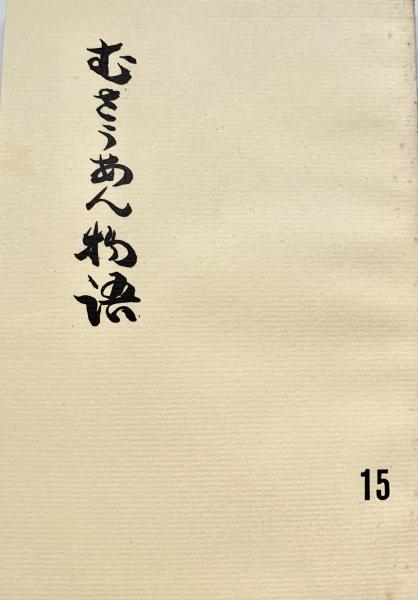 むさうあん物語
15